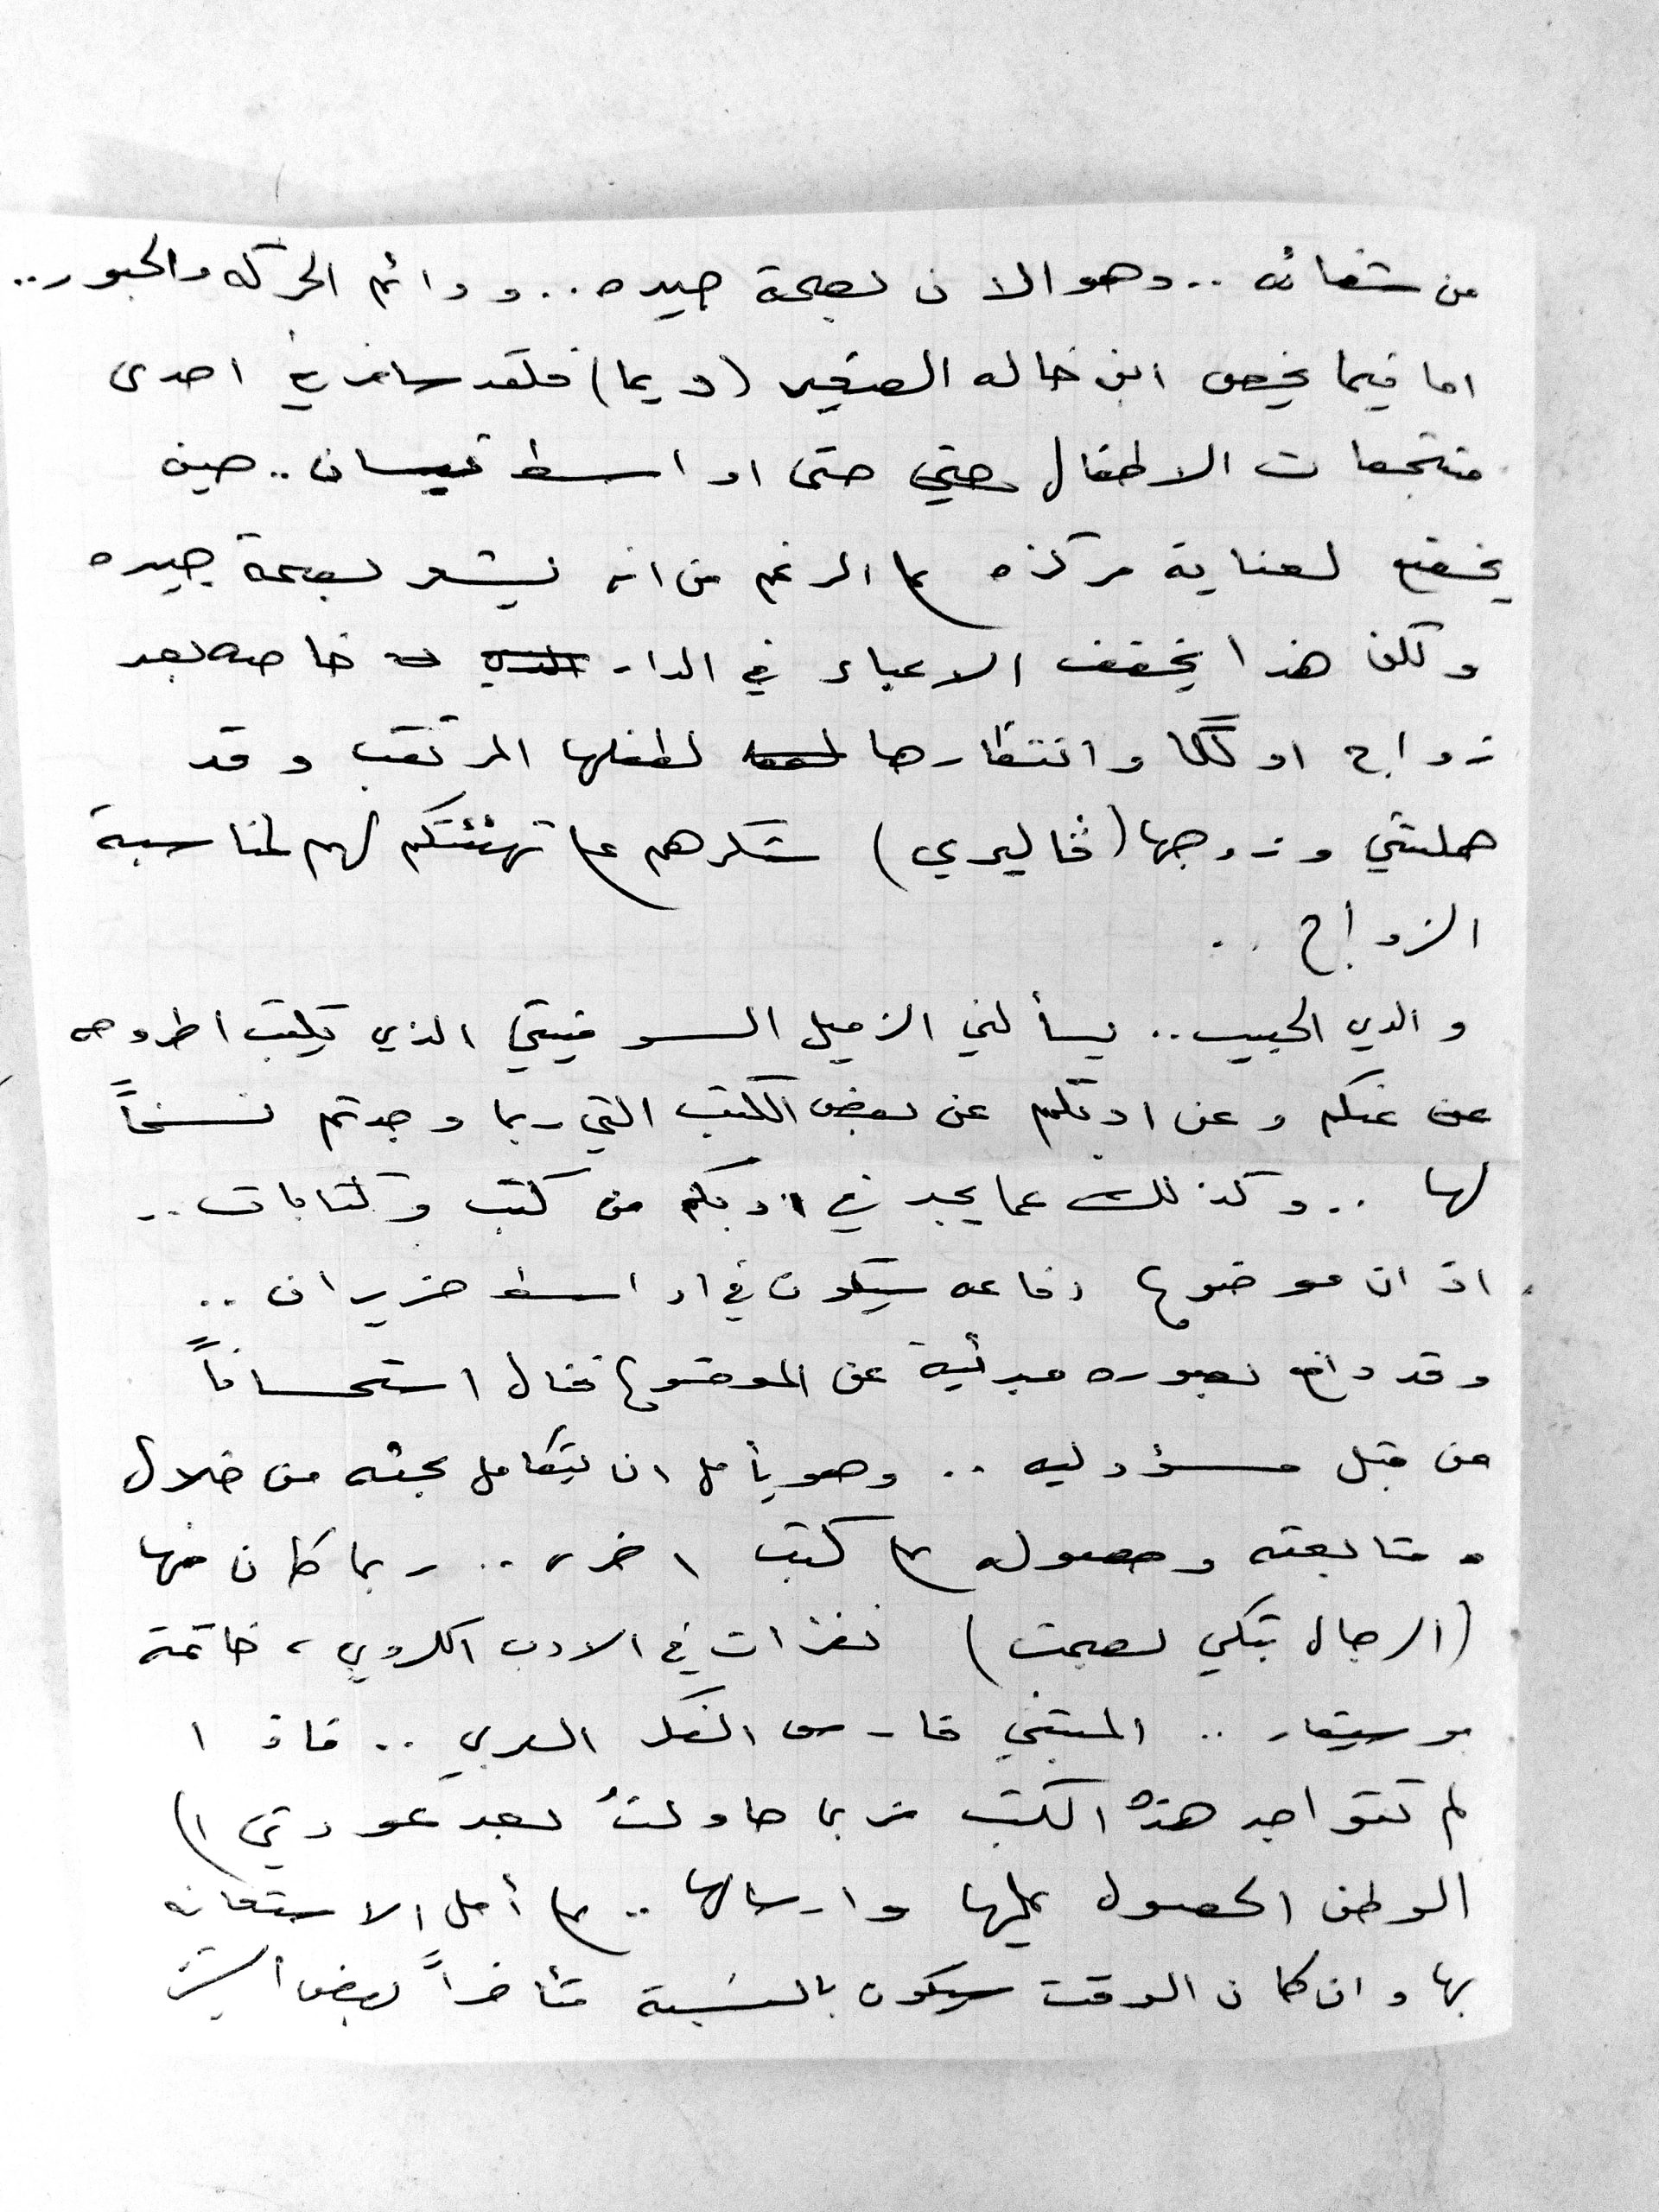 من شفائه .. وهو الان بصحة جيده .. ودائم الحركه والحبور ..
اما فيما يخص ابن خاله الصغير (ديما) فلقد سافر في احدى
منتجعات الاطفال حتى اواسط نيسان .. حين
يخضع لعناية مركزه على الرغم من انه يشعر بصحة جيده
ولكن هذا يخفف الاعباء في الدار خاصه بعد
زواج اولگا وانتظارها لطفلها المرتقب وقد
حملتني وزوجها (ڤاليري) شكرهم على تهنئتكم لهم لمناسبة
الزواج ..
والدي الحبيب .. يسألني الزميل السوفيتي الذي يكتب اطروحه
عنكم وعن ادبكم عن بعض الكتب التي ربما وجدتم نسخاً
لها .. وكذلك عما يجد في ادبكم من كتب وكتابات ..
اذ ان موضوع دفاعه سيكون في اواسط حزيران ..
وقد دافع بصوره مبدئية عن الموضوع فنال استحساناً
من قبل مسؤوليه .. وهو يأمل ان يتكامل بحثه من خلال
متابعته وحصوله على كتب اخرى .. ربما كان منها
(الرجال تبكي بصمت) في الادب الكردي ، خاتمة
.. المتنبي فارس الفكر العربي .. فاذا
لم تتواجد هذه الكتب فربما حاولتُ بعد عودتي الى
الوطن الحصول عليها وارسالها .. على أمل الاستعانه
بها وان كان الوقت سيكون بالنسبة متأخراً بعض الشئ